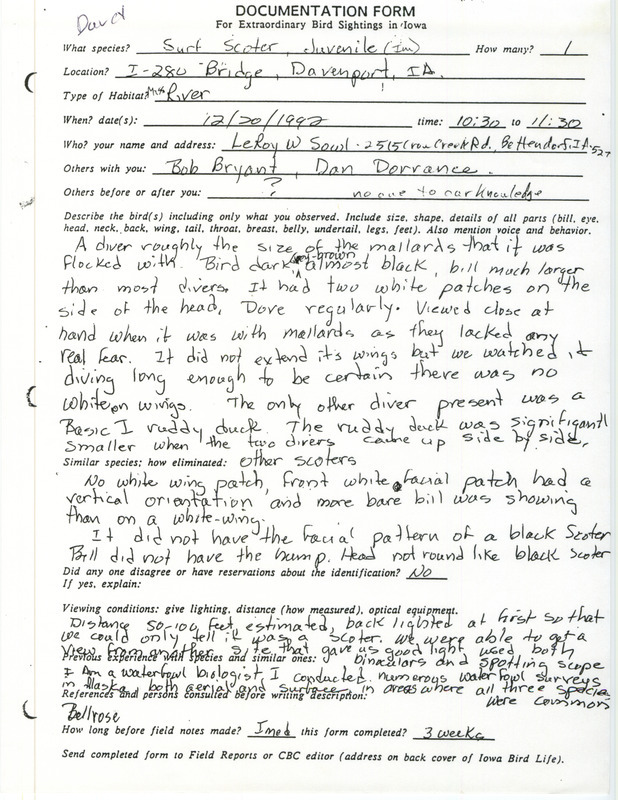 DOCUMENTATION FORM
For Extraordinary Bird Sightings in Iowa
What species? Surf Scoter, Juvenile (Im) How many? 1
Location? I-280 Bridge, Davenport, IA.
Type of Habitat? River
When? date(s): 12/20/1992 time: 10:30 to 11:30
Who? your name and address: LeRoy W Sowl - 2515 Crow Creek Rd., Bettendorf, IA. 527
Others with you: Bob Bryant, Dan Dorrance.
Others before or after you: ? no one to our knowledge
Describe the bird(s) including only what you observed. Include size, shape, details of all parts (bill, eye,
head, neck, back, wing, tail, throat, breast, belly, undertail, legs, feet). Also mention voice and behavior.
A diver roughly the size of the mallards that it was
flocked with. Bird dark brown almost black, bill much larger
than most divers. It had two white patches on the
side of the head. Dove regularly. Viewed close at
hand when it was with mallards as they lacked any
real fear. It did not extend it's wings but we watched it
diving long enough to be certain there was no
white on wings. The only other diver present was a
Basic I ruddy duck. The ruddy duck was significantl
smaller when the two divers came up side by side.
Similar species; how eliminated: other scoters
No white wing patch, front white facial patch had a
vertical orientation and more bare bill was showing
than on a white-wing.
It did not have the facial pattern of a black Scoter
Bill did not have the hump. Head not round like black Scoter
Did any one disagree or have reservations about the identification? No
If yes, explain:
Viewing conditions: give lighting, distance (how measured), optical equipment.
Distance 50-100 feet, estimated, back lighted at first so that
we could only tell it was a scoter. We were able to get a
view from another site that gave us good light used both
binculars and spotting scope
Previous experience with species and similar ones:
I Am a waterfowl biologist, I conducted numerous waterfowl surveys
in Alaska both aerial and surface in areas where all three species
were common
References and persons consulted before writing description:
Bellrose
How long before field notes made? Imed this form completed? 3 weeks
Send completed form to Field Reports or CBC editor (address on back cover of Iowa Bird Life).